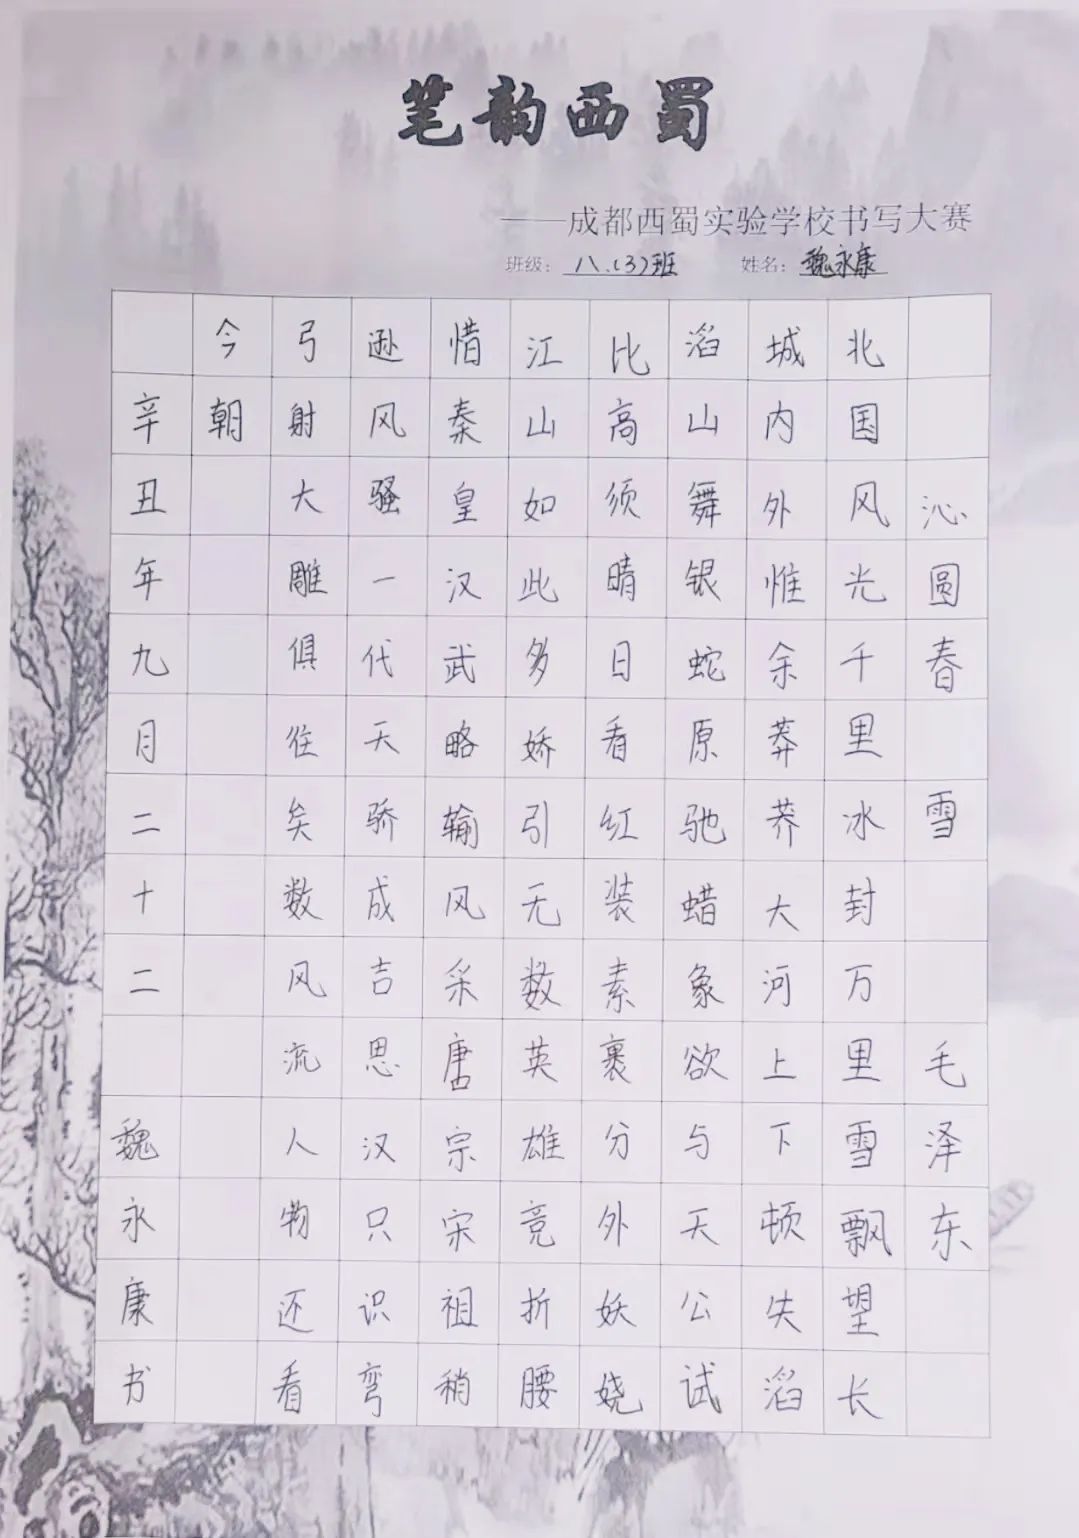 笔韵西蜀
——成都西蜀实验学校书写大赛
班级：八.(3)班 姓名：魏永康
沁圆春 雪 毛泽东
北国风光千里冰封万里雪飘望长
城内外惟余莽莽大河上下顿失滔
滔山舞银蛇原驰蜡象欲与天公试
比高须晴日看红装素裹分外妖娆
江山如此多娇引无数英雄竞折腰
惜秦皇汉武略输风采唐宗宋祖稍
逊风骚一代天骄成吉思汉只识弯
弓射大雕俱往矣数风流人物还看
今朝
辛丑年九月二十二 魏永康书